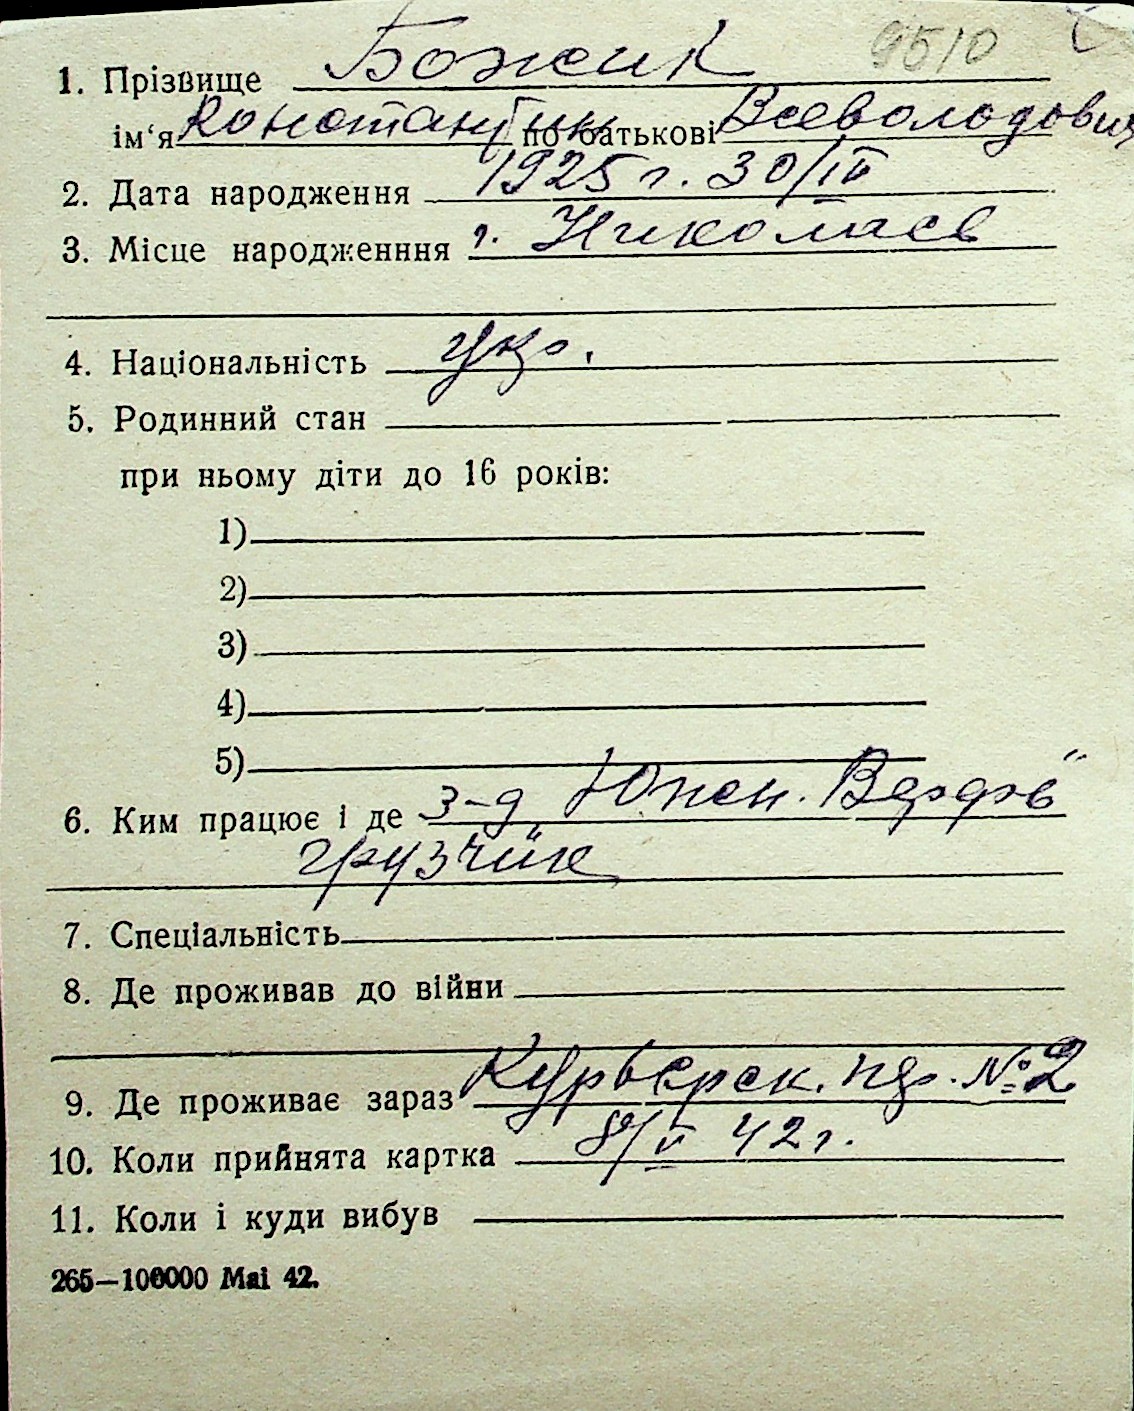 9510
1. Прізвище Божик
ім‘я Константин по батькові Всеволодович
2. Дата народження 1925 г. 30/IV
3. Місце народженння г. Николаев
4. Національність укр.
5. Родинний стан
при ньому діти до 16 років:
1)
2)
3)
4)
5)
6. Ким працює і де з-д Южн. Верфь"
грузчик
7. Спеціальність
8. Де проживав до війни
9. Де проживає зараз Курьерск. пер. № 2
10. Коли прийнята картка 8/V 42 г.
11. Коли і куди вибув
265—100000 Mai 42.